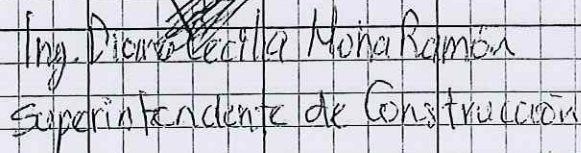 Ing. Diana Cecilia Mona Ramón
Superintendente de Construcción